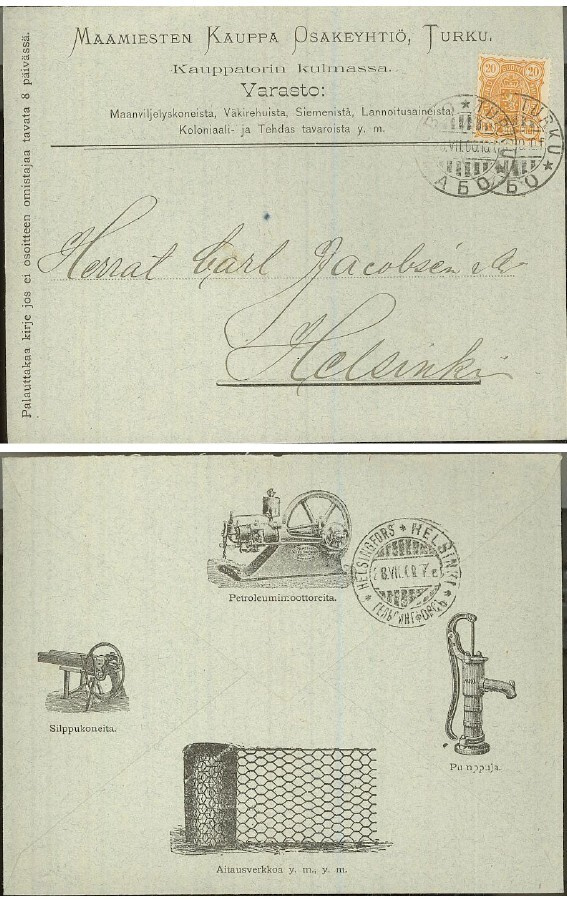 Palauttakaa kirje jos ei osoitteen omistajaa tavata 8 päivässä.
MAAMIESTEN KAUPPA OSAKEYHTIÖ, TURKU.
Kauppatorin kulmassa.
Varasto:
Maanviljelyskoneista, Väkirehuista, Siemenistä, Lannoitusaineista,
Koloniaali- ja Tehdas tavaroista y. m.
20 20
TURKU
TURKU
АБО
АБО
Herrat Carl Jacobsén
Helsinki
HELSINGFORS * HELSINKI
ГЕЛЬСИНГФОРСЪ
Petroleumimoottoreita.
Silppukoneita.
Pumppuja.
Aitausverkkoa y. m., y. m.